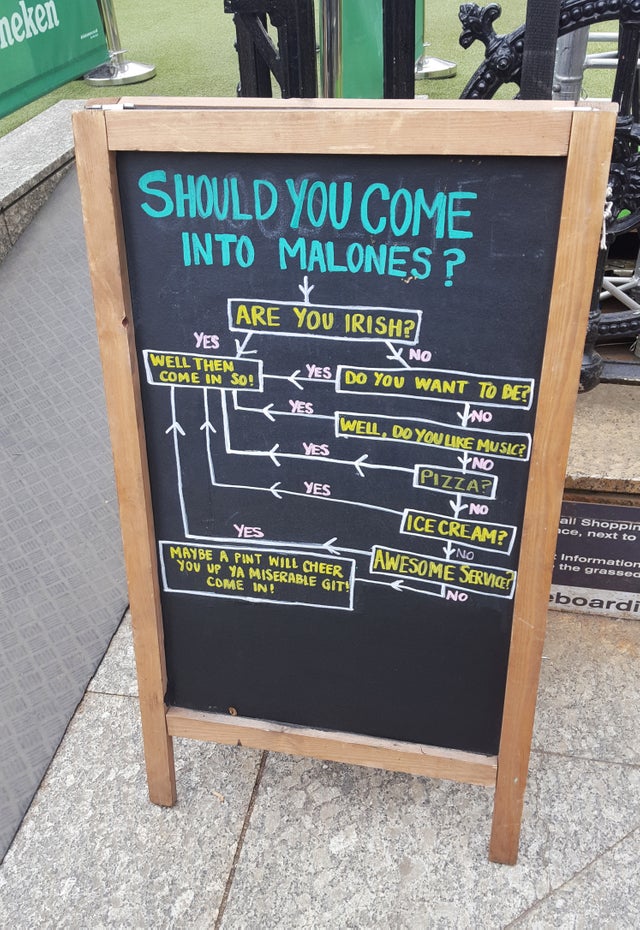 neken
SHOULD YOU COME
INTO MALONES?
ARE YOU IRISH?
YES
NO
WELL THEN
COME IN SO!
YES
DO YOU WANT TO BE?
NO
YES
WELL, DO YOU LIKE MUSIC?
NO
YES
PIZZA?
NO
YES
ICE CREAM?
NO
YES
AWESOME SERVICE?
NO
MAYBE A PINT WILL CHEER
YOU UP YA MISERABLE GIT!
COME IN!
all Shoppin
ce, next to
Information
the grassed
eboardi